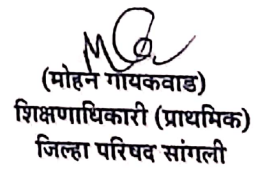 (मोहन गायकवाड)
शिक्षणाधिकारी (प्राथमिक)
जिल्हा परिषद सांगली